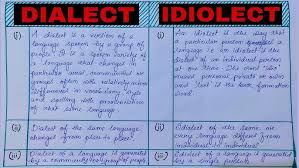 DIALECT
IDIOLECT
(i)
A dialect is a version of a
language spoken by a group of
people. It is a
of a language that changes in
particular area, communities or
groups often with relatively
differences in vocabulary, style
and spelling with pronunciation
of that same language.
(i)
An Idiolect is the way that
a particular person
language i.e. Idiolect is the
dialect of an individual person
at one time. This term "Idio"
means personal, private or own
and "lect" is the back formation
(ii)
Dialect of the same language
changed from place to place.
(ii)
Idiolect of the same
language different from
individual to individual.
(iii)
Dialect of a language is
generated by a community or group of people
(iii)
Idiolect of a language is generated
by a single person.